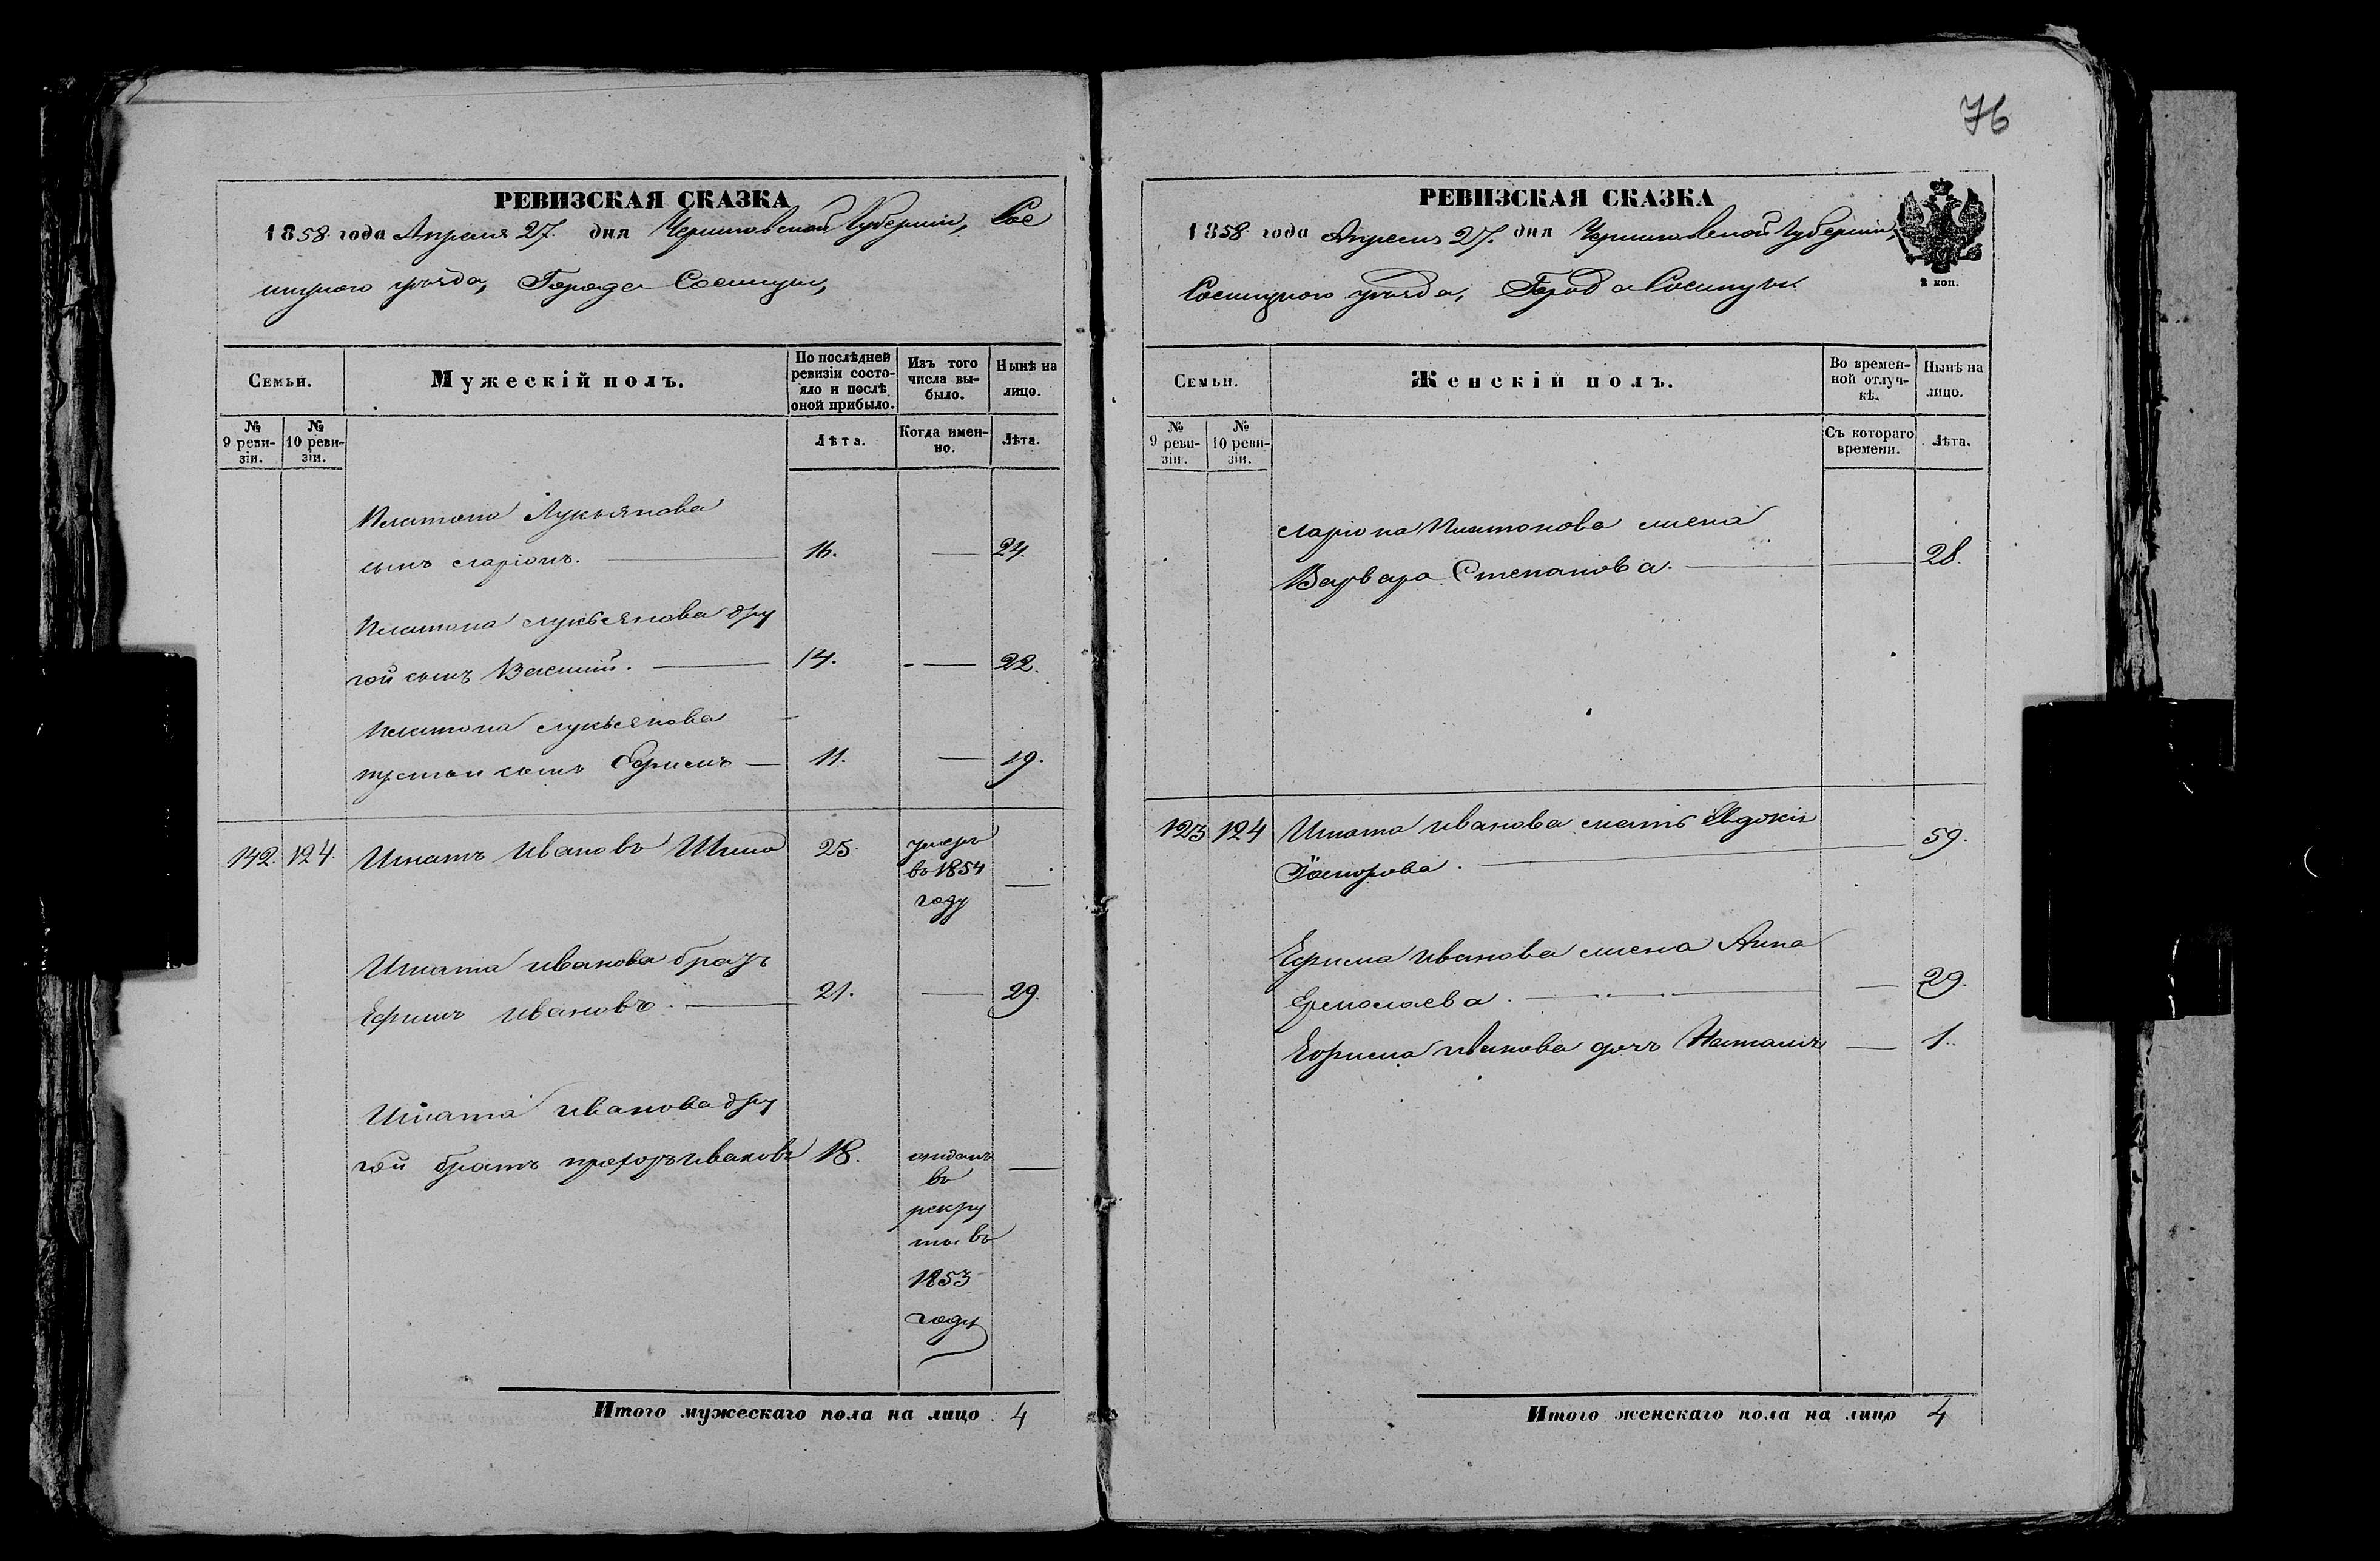 76
РЕВИЗСКАЯ СКАЗКА
1858 года Апреля 27. дня Черниговской Губерніи, Сос
ницкого уезда, Города Сосницы,
Семьи.
Мужескій полъ.
По послѣдней ревизіи состояло и послѣ оной прибыло.
Изъ того числа вы-было.
Нынѣ на лицо.
№ 9 реви-зіи.
№ 10 реви-зіи.
Лѣта.
Когда имен-но.
Лѣта.
Платона Лукьянова
сынъ Ларіонъ. 16. — 24.
Платона Лукьянова дру
гой сынъ Василий. 14. — 22.
Платона Лукьянова
третий сынъ Ефимъ — 11. — 19.
142. 124. Игнатъ Ивановъ 25. умеръ
въ 1854
году —
Игната Иванова братъ
Ефимъ Ивановъ. 21. — 29.
Игната Иванова дру
гой братъ Прохоръ Ивановъ 18. отданъ —
въ
рекру
ты въ
1853
году
Итого мужескаго пола на лицо 4
РЕВИЗСКАЯ СКАЗКА
1858 года Апреля 27. дня Черниговской Губерніи,
Сосницкого уезда, Города Сосницы.
2 коп.
Семьи.
Женскій полъ.
Во времен-ной отлуч-кѣ.
Нынѣ на лицо.
№ 9 реви-зіи.
№ 10 реви-зіи.
Съ котораго времени.
Лѣта.
Ларіона Платонова жена
Варвара Степанова. — 28.
123 124 Игната Иванова мать Евдокія 59.
Ефима Иванова жена Анна
Ермолаева. — 29.
Ефима Иванова дочь Наталія — 1.
Итого женскаго пола на лицо 4